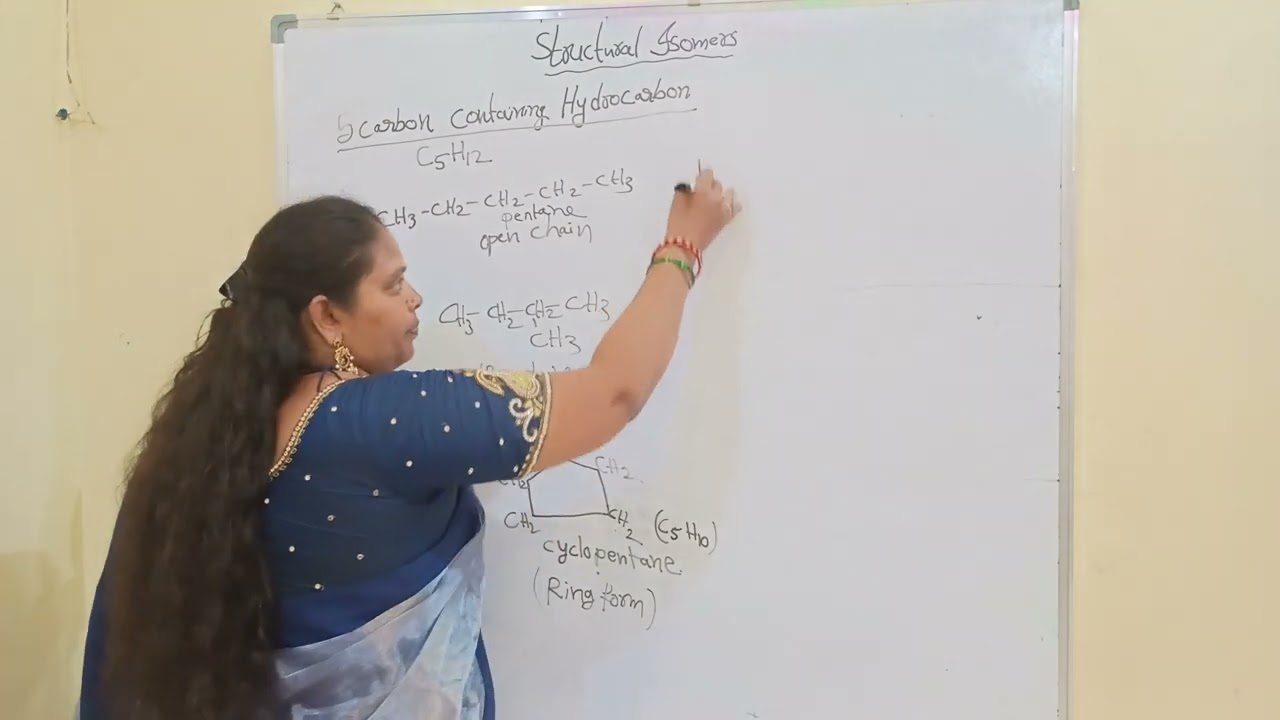 Structural Isomers
5 carbon containing Hydrocarbon
C5H12
CH3-CH2-CH2-CH2-CH3
pentane
open chain
CH3-CH2-CH-CH3
CH3
CH2
CH2 CH2 (C5H10)
cyclopentane
(Ring form)